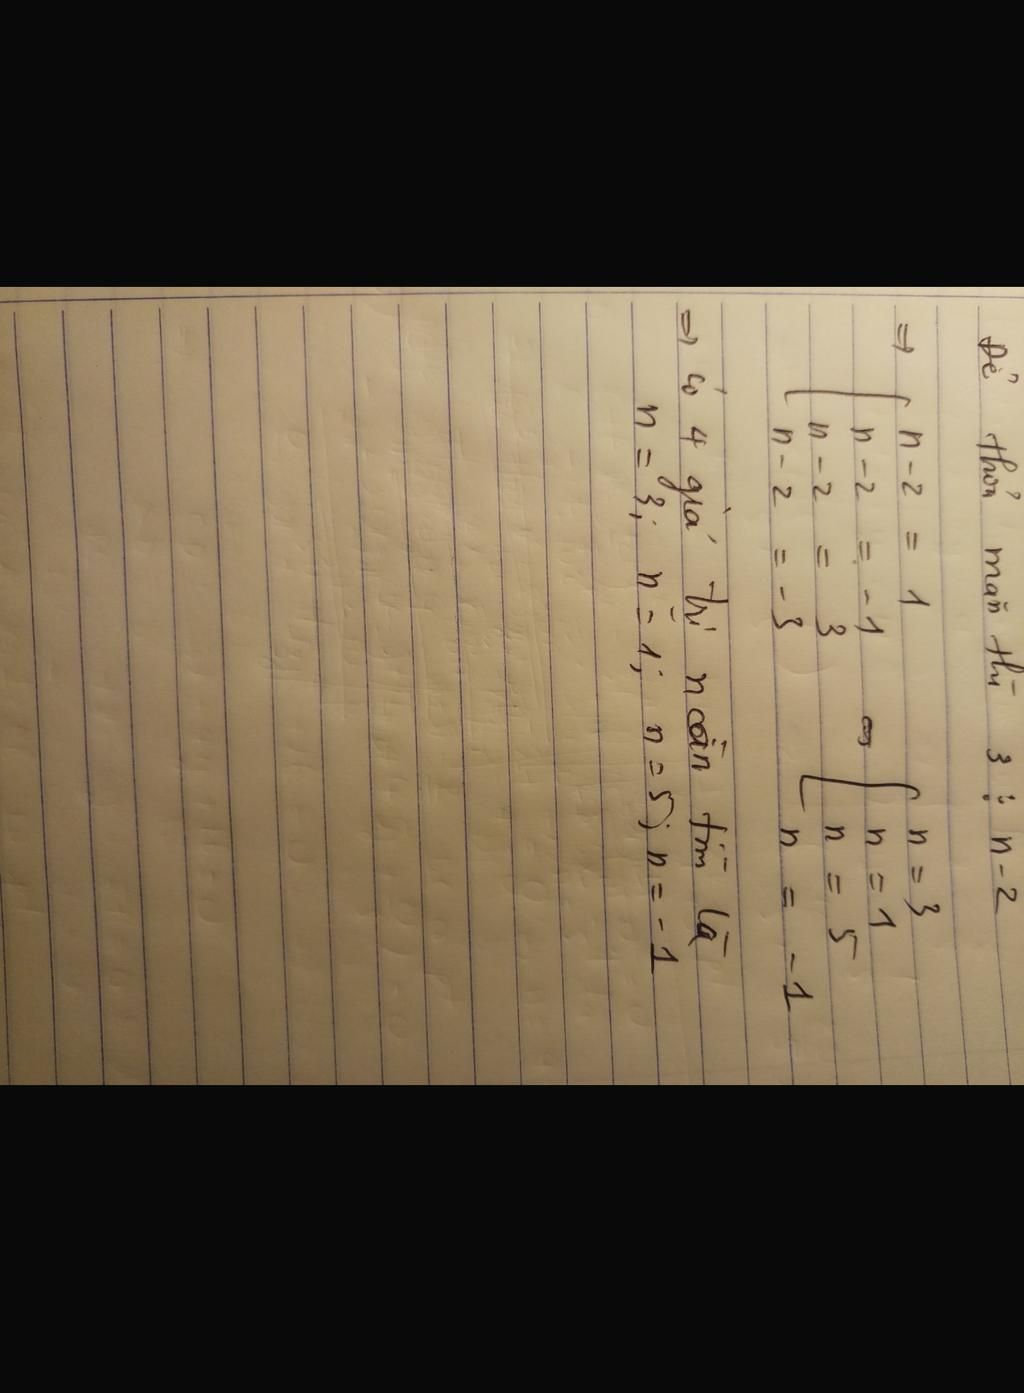 Để thoả mãn thì 3 ⋮ n-2
⇒ [ n-2 = 1 ⇔ [ n = 3
n-2 = -1 n = 1
n-2 = 3 n = 5
n-2 = -3 n = -1
⇒ có 4 giá trị n cần tìm là
n = 3; n = 1; n = 5; n = -1